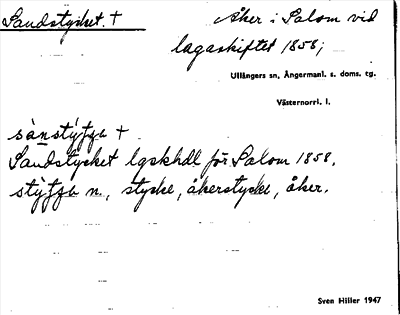 Sandstycket. + Åker i Salom vid
lagaskiftet 1858;
Ullångers sn, Ångermanl. s. doms. tg.
Västernorrl. l.
+
Sandstycket lgskhdl för Salom 1858.
n., stycke, åkerstycke, åker.
Sven Hiller 1947